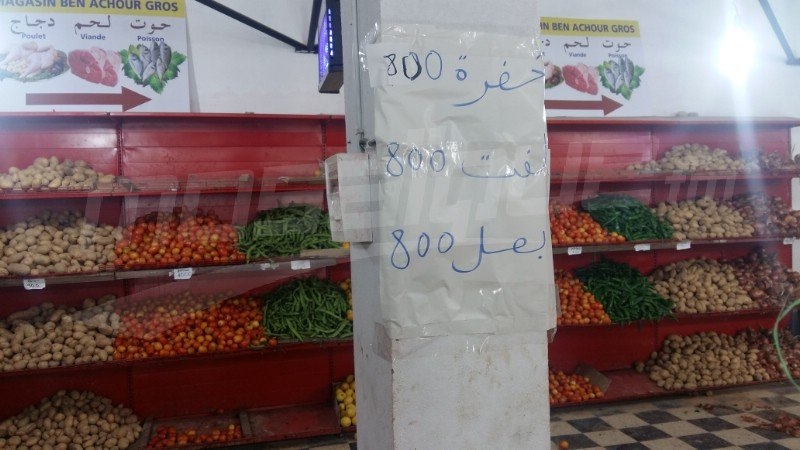 MAGASIN BEN ACHOUR GROS
حوت لحم دجاج
Poulet Viande Poisson
MAGASIN BEN ACHOUR GROS
حوت لحم دجاج
Viande Poisson
سفرة 800
لفت 800
بصل 800